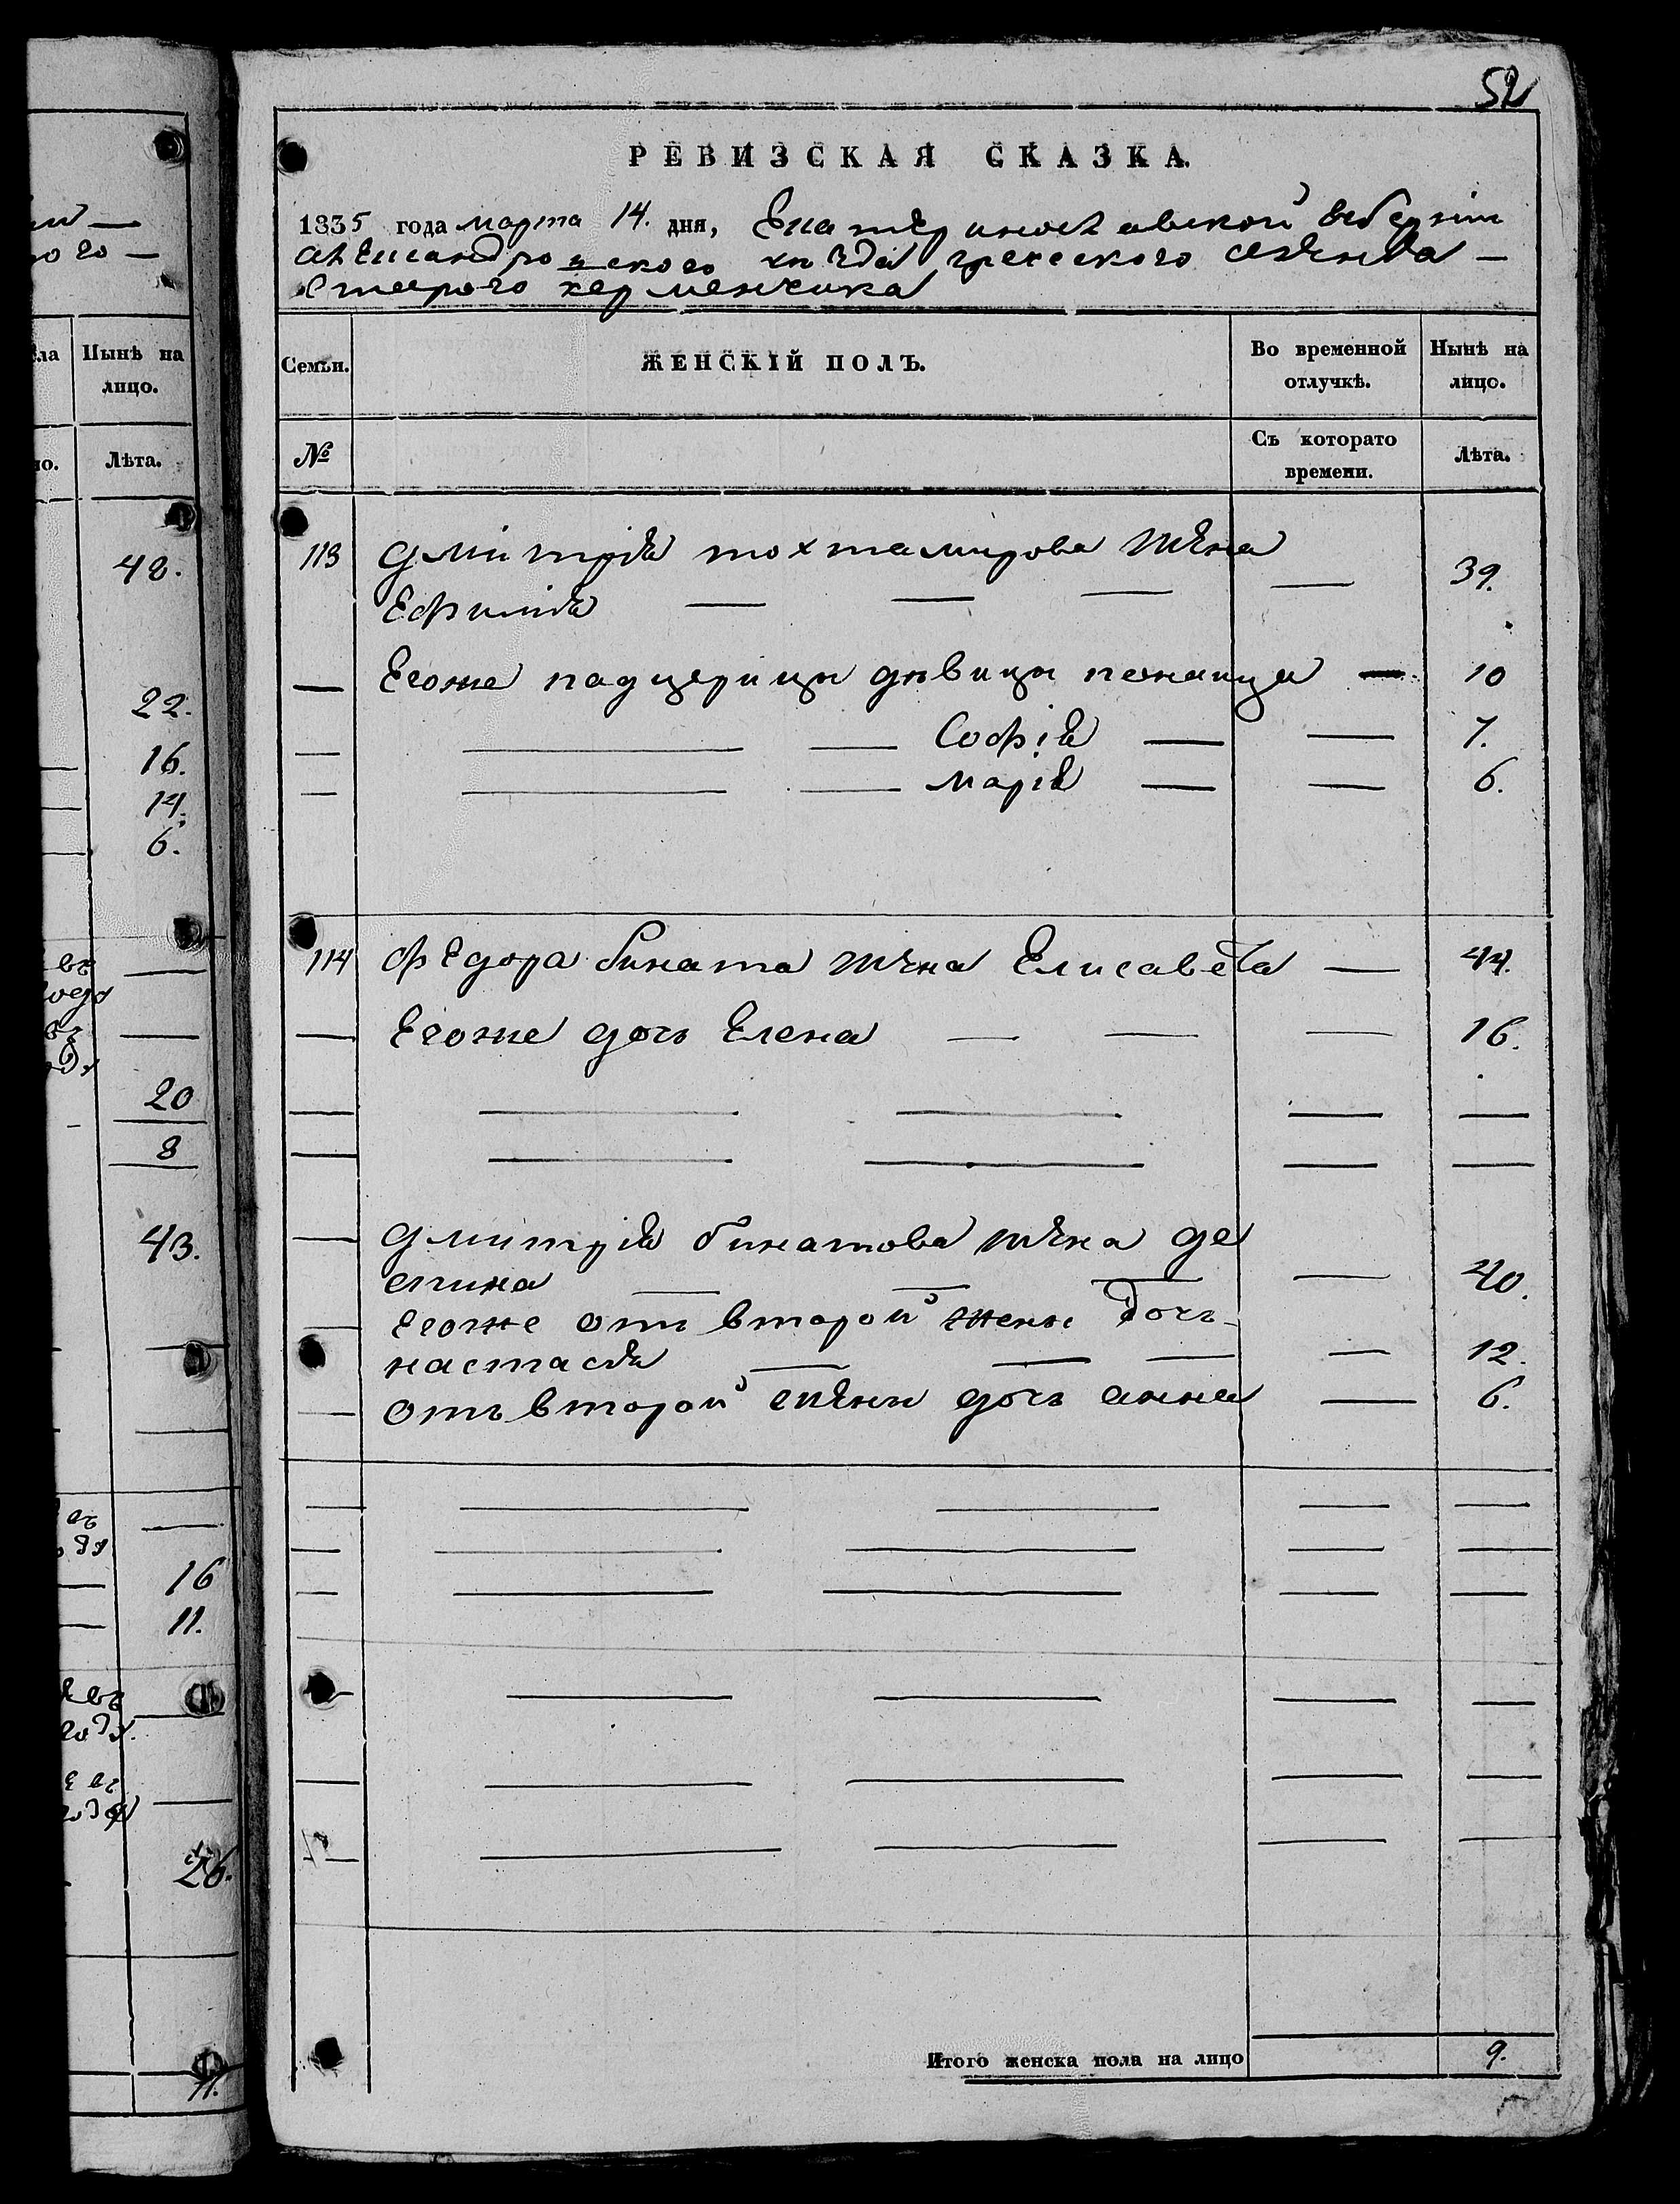 52
РЕВИЗСКАЯ СКАЗКА.
1835 года марта 14. дня, Екатеринославской губерніи
Александровскаго уѣзда греческого селенія —
Стараго керменчика
Семьи. ЖЕНСКІЙ ПОЛЪ. Во временной отлучкѣ. Нынѣ на лицо.
№ Съ котораго времени. Лѣта.
113 Дмитрія тохтамирова жена
Ефимія — — — — 39.
— Егоже падчерицы дѣвицы — 10
— — — Софія — — 7.
— — — марія — — 6.
114 Федора бината жена Елисавета — 44.
— Егоже дочь Елена — — — 16.
— — — — —
— — — — —
— Дмитрія бинатова жена де
спина — — — — 40.
— егоже отъ второй жены дочь
настасія — — — — 12.
— отъ второй жены дочь анна — 6.
— — — — —
— — — — —
— — — — —
— — — — —
— — — — —
— — — — —
Итого женска пола на лицо 9.
Нынѣ на
лицо.
Лѣта.
42.
22.
16.
14.
6.
20
8
43.
16
11.
26.
11.